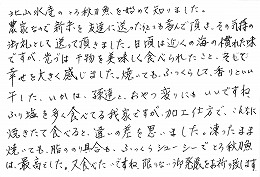 北山水産のとろ秋刀魚を始めて知りました。
農家なので新米を友達に送ったらとても喜んで頂き、その気持の
御礼として送って頂きました。日頃は近くの海の慣れた味
ですが、先ずは干物を美味しく食べられたこと、そして
幸せを大きく感じました。焼いても、ふっくらして、香りといい
干した、いかは、孫達と、おやつ変りにもいいですね
ぶり塩を多く食べてる我家ですが、加工仕方で、こんなに
焼きたて食べると、違いの差を思いました。凍ったまま
焼いても、脂ののり具合も、ふっくらジューシーでとろ秋刀魚
は、最高でした。又食べたいですね 限りない御発展をお祈り致します